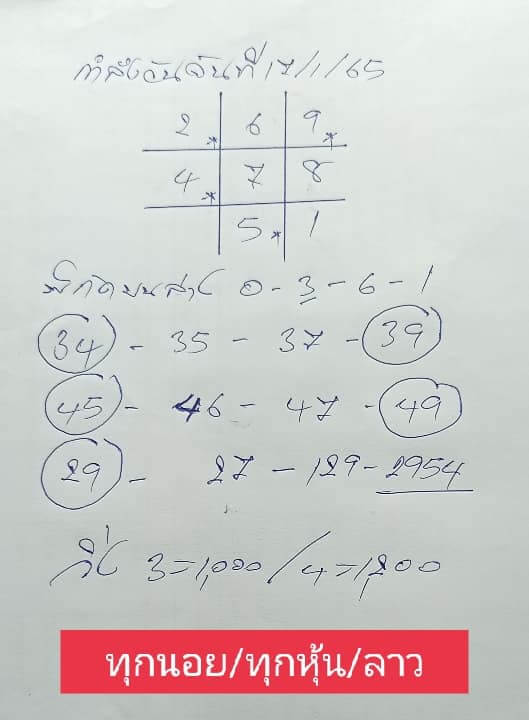 กำลังวันจันที่ 17/1/65
2* 6 9*
4* 7 8
5* 1
พิกัดบนล่าง 0-3-6-1
34 - 35 - 37 - 39
45 - 46 - 47 - 49
29 - 27 - 129 - 2954
3=1,000 / 4=1,200
ทุกนอย/ทุกหุ้น/ลาว